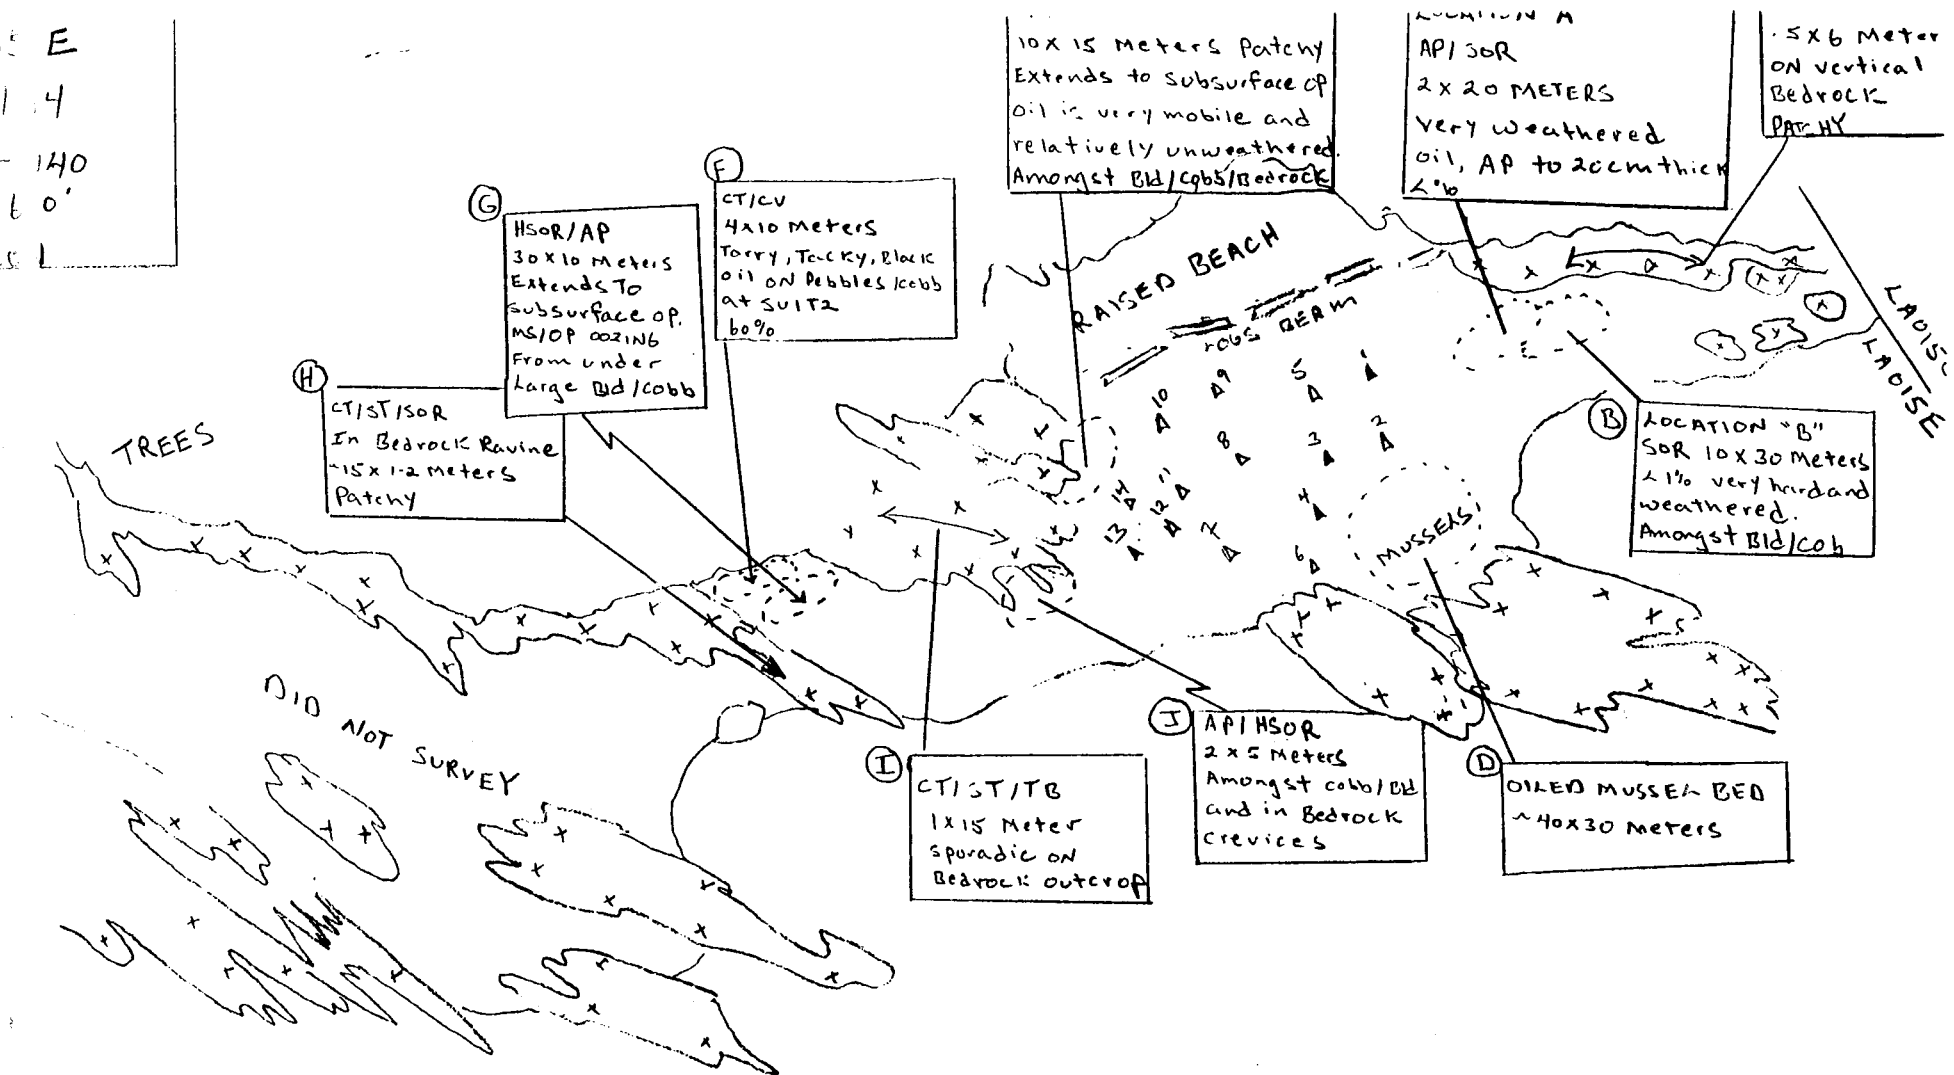 E
4
140
0'
1
10 x 15 Meters Patchy
Extends to subsurface OP
Oil is very mobile and
relatively unweathered.
Amongst Bld/Cobs/Bedrock
LOCATION A
AP/SOR
2 x 20 METERS
Very weathered
oil, AP to 20cm thick
.5 x 6 Meter
ON vertical
Bedrock
PATCHY
F
CT/CV
4x10 Meters
Tarry, Tacky, Black
oil ON Pebbles/cobb
at SUIT2
60%
G
HSOR/AP
30 x 10 Meters
Extends To
subsurface OP.
MS/OP
From under
Large Bld/Cobb
H
CT/ST/SOR
In Bedrock Ravine
~15 x 1-2 Meters
Patchy
RAISED BEACH
BERM
LA015
LA015E
TREES
10
9
5
1
8
3
2
14
11
12
4
13
7
6
MUSSELS
B
LOCATION "B"
SOR 10 x 30 Meters
<1% very hard and
weathered.
Amongst Bld/Cob
DID NOT SURVEY
I
CT/ST/TB
1 x 15 Meter
sporadic ON
Bedrock outcrop
J
AP/HSOR
2 x 5 Meters
Amongst cobb/Bld
and in Bedrock
crevices
D
OILED MUSSEL BED
~40x30 Meters